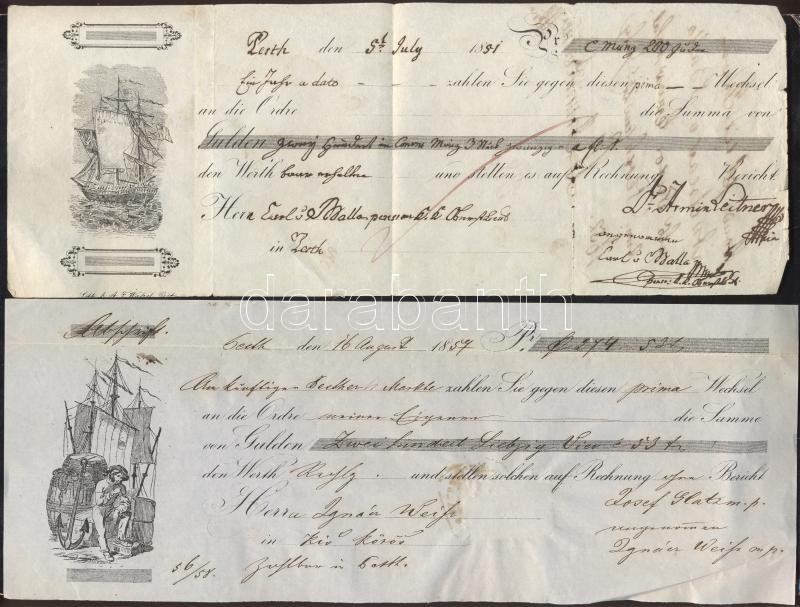 Pesth den 5t July 1851 Pr. C Münz 200 Guden
Ein Jahr a dato zahlen Sie gegen diesen prima Wechsel
an die Ordre die Summa von
Gulden zwey Hundert in Conv. Münz 3 Stück zwanzig a f 1.
den Werth baar erhalten und stellen es auf Rechnung Bericht
Dr Armin Leitner
Herrn Carl v Malla pension. k.k.
in Pesth
angenommen
Carl v Malla
darabanth
Abschrift.
Pesth den 16 August 1857 Pr. f 274 53 x
Am künftigen Pesther Markte zahlen Sie gegen diesen prima Wechsel
an die Ordre meiner Eigenen die Summe
von Gulden Zwei hundert Siebzig Vier f 53 xr
den Werth und stellen solchen auf Rechnung ohne Bericht
Josef Glatz m.p.
Herrn Ignácz Weiss
angenommen
in Kis Körös
Ignácz Weiss m.p.
56/58. Zahlbar in Pesth.